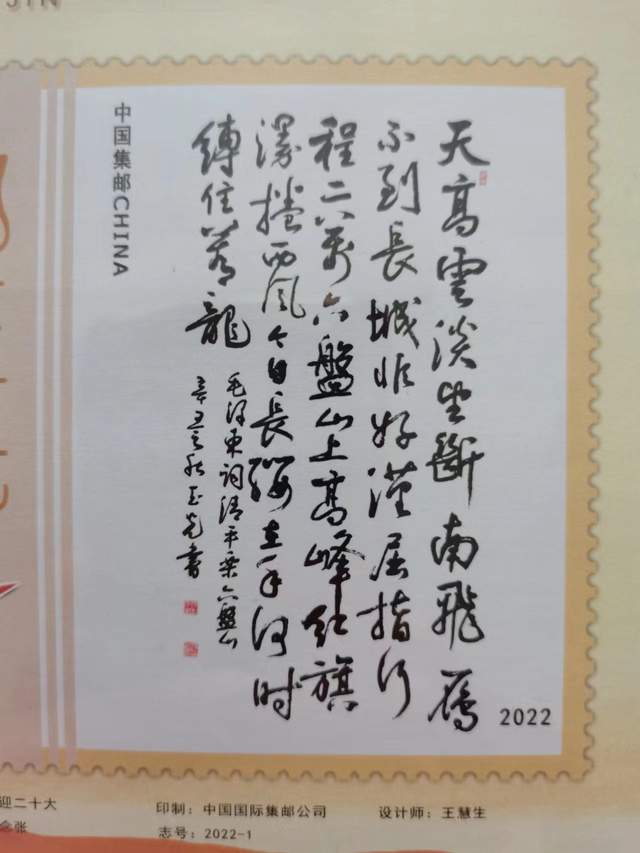 JIN
中国集邮CHINA
天高雲淡望斷南飛雁
不到長城非好漢屈指行
程二萬六盤山上高峰红旗
漫捲西風今日長纓在手何時
縛住蒼龍
毛泽東詞清平樂六盤山
辛丑秋玉光書
2022
迎二十大
念张
印制：中国国际集邮公司
志号：2022-1
设计师：王慧生